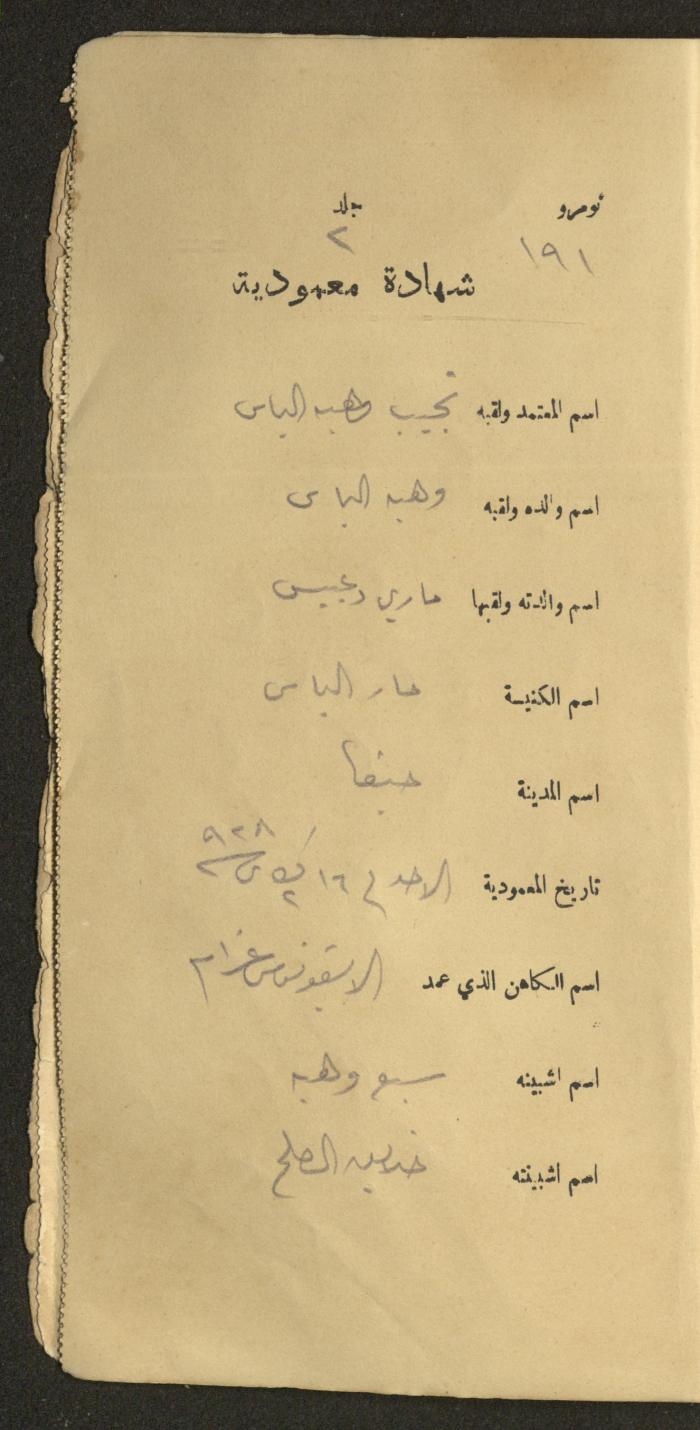 نومرو جلد
١٩١ ٢
شهادة معمودية
اسم المعتمد ولقبه نجيب وهبه الياس
اسم والده ولقبه وهبه الياس
اسم والدته ولقبها ماري دعيبس
اسم الكنيسة مار الياس
اسم المدينة حيفا
تاريخ المعمودية الاحد في ١٦ ك ٢ سنة ٩٢٨
اسم الكاهن الذي عمد الايقونوس
اسم اشبينه سبع وهبه
اسم اشبينته